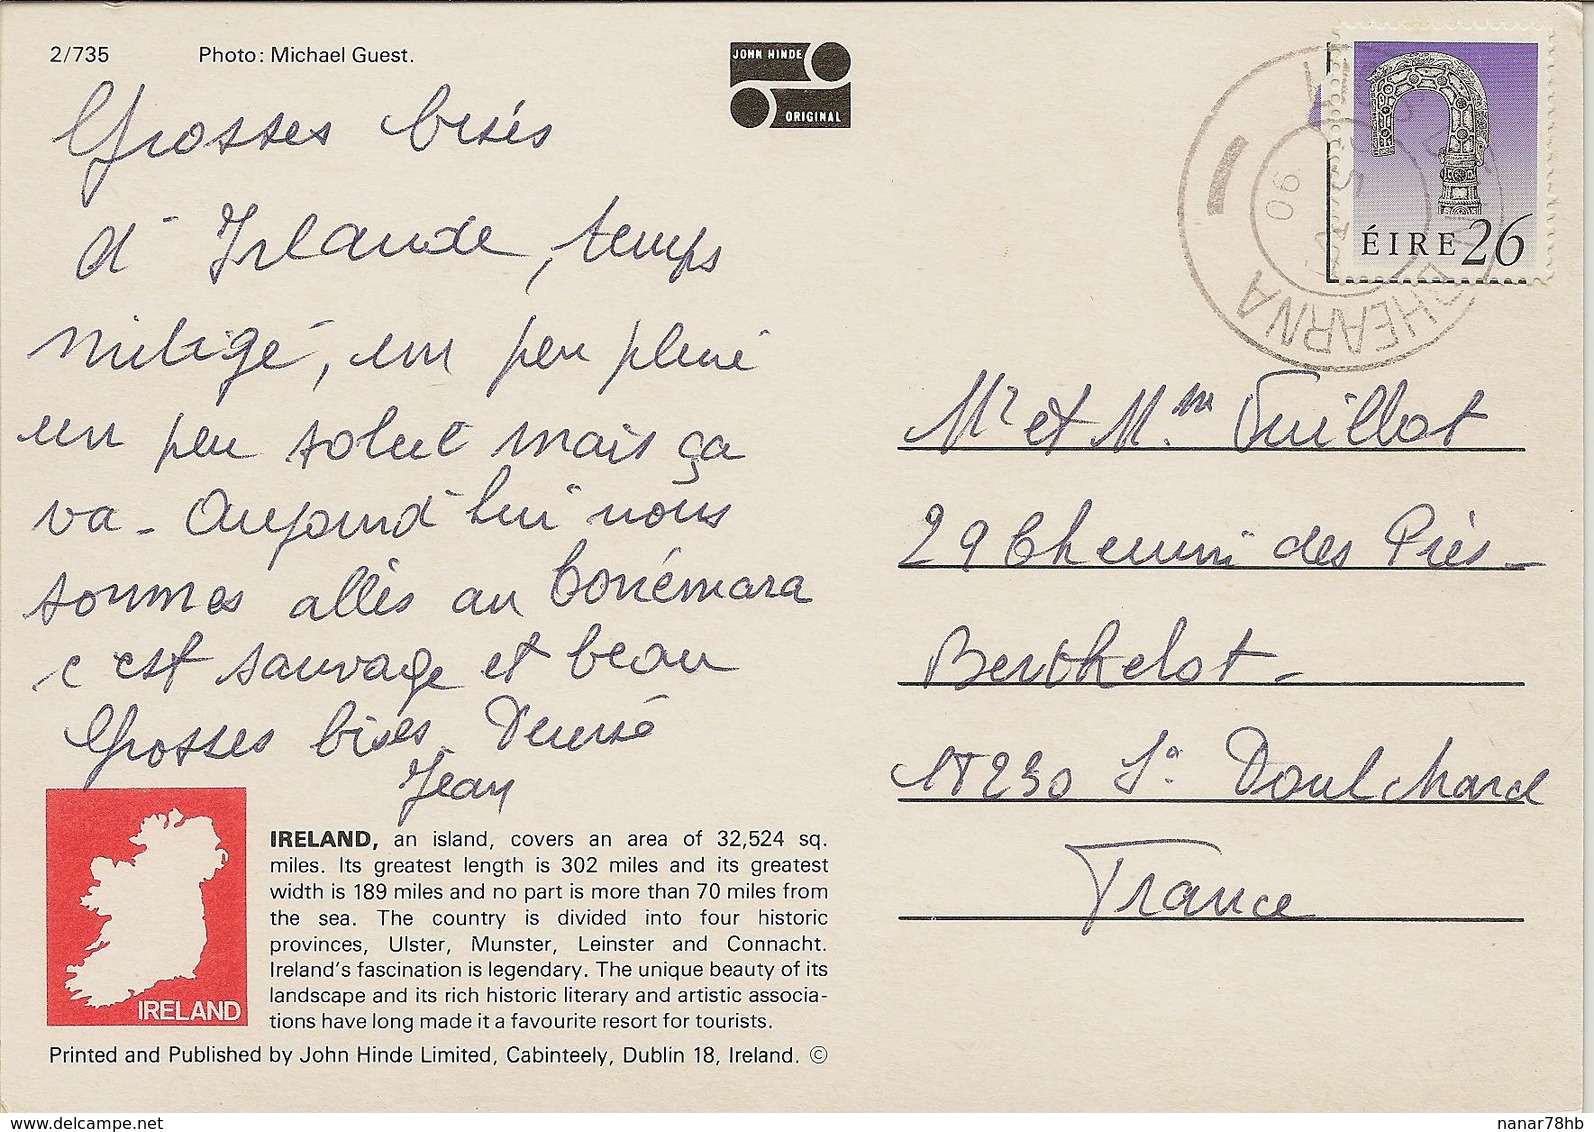 2/735 Photo: Michael Guest.
JOHN HINDE
ORIGINAL
Grosses bisés
d'Irlande, temps
mitigé, un peu pluie
un peu soleil mais ça
va - Aujourd'hui nous
sommes allés au Conémara
c'est sauvage et beau
Grosses bises Denise
Jean
ÉIRE 26
90
GHEARNA
Mr et M.m Vuillot
29 Chemin des Près-
Berthelot-
18230 St Doulchard
France
IRELAND
IRELAND, an island, covers an area of 32,524 sq.
miles. Its greatest length is 302 miles and its greatest
width is 189 miles and no part is more than 70 miles from
the sea. The country is divided into four historic
provinces, Ulster, Munster, Leinster and Connacht.
Ireland's fascination is legendary. The unique beauty of its
landscape and its rich historic literary and artistic associa-
tions have long made it a favourite resort for tourists.
Printed and Published by John Hinde Limited, Cabinteely, Dublin 18, Ireland. ©
nanar78hb